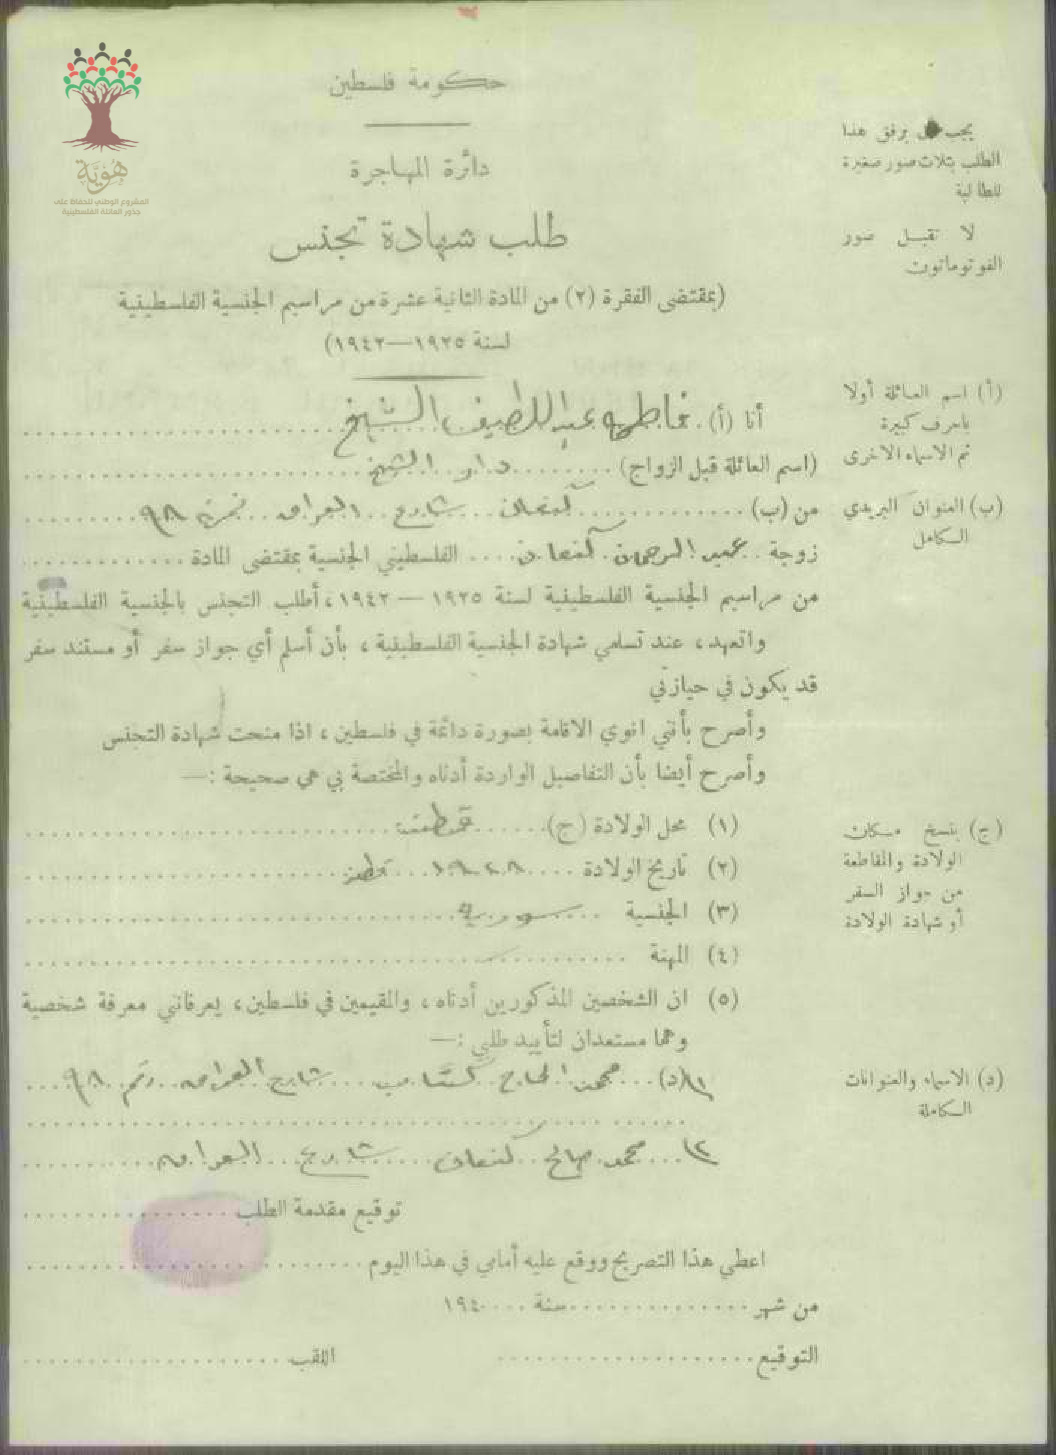 هوية
المشروع الوطني للحفاظ على
جذور العائلة الفلسطينية
حكومة فلسطين
دائرة المهاجرة
طلب شهادة تجنس
(بمقتضى الفقرة (٢) من المادة الثانية عشرة من مراسيم الجنسية الفلسطينية
لسنة ١٩٢٥—١٩٤٢)
يجب برفق هذا
الطلب بثلاث صور صغيرة
للطالبة
لا تقبل صور
الفوتوماتون
أنا (أ) فاطمه عبد اللطيف الشيخ
(اسم العائلة قبل الزواج) دار الشيخ
من (ب) كنعان شارع العراق نمرة ٩٨
زوجة عبد الرحمن كنعان الفلسطيني الجنسية بمقتضى المادة
من مراسيم الجنسية الفلسطينية لسنة ١٩٢٥ — ١٩٤٢، أطلب التجنس بالجنسية الفلسطينية
واتعهد، عند تسلمي شهادة الجنسية الفلسطينية، بأن أسلم أي جواز سفر أو مستند سفر
قد يكون في حيازتي
وأصرح بأنني انوي الاقامة بصورة دائمة في فلسطين، اذا منحت شهادة التجنس
وأصرح أيضا بأن التفاصيل الواردة أدناه والمختصة بي هي صحيحة :—
(١) محل الولادة (ج)
(٢) تاريخ الولادة
(٣) الجنسية سورية
(٤) المهنة
(٥) ان الشخصين المذكورين أدناه، والمقيمين في فلسطين، يعرفانني معرفة شخصية
وهما مستعدان لتأييد طلبي :—
١ (د) محمد الحاج شارع العراق رقم ٩٨
٢ محمد صالح كنعان شارع العراق
توقيع مقدمة الطلب
اعطي هذا التصريح ووقع عليه أمامي في هذا اليوم
من شهر سنة ١٩٤
التوقيع اللقب
(أ) اسم العائلة أولا
باحرف كبيرة
ثم الاسماء الاخرى
(ب) العنوان البريدي
الكامل
(ج) ينسخ مكان
الولادة والمقاطعة
من جواز السفر
أو شهادة الولادة
(د) الاسماء والعنوانات
الكاملة